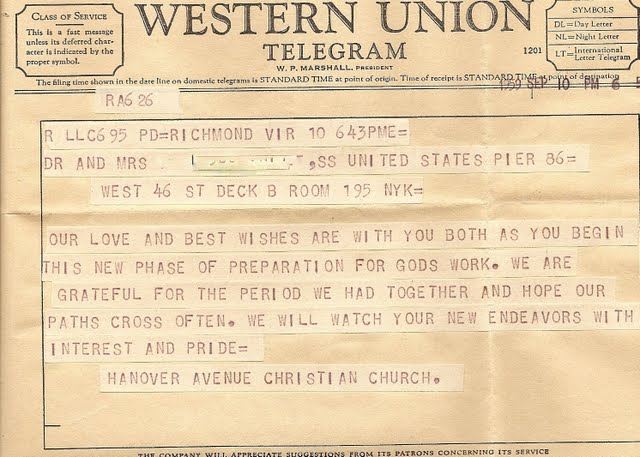 CLASS OF SERVICE
This is a fast message
unless its deferred char-
acter is indicated by the
proper symbol.
WESTERN UNION
TELEGRAM
W. P. MARSHALL, PRESIDENT
1201
SYMBOLS
DL=Day Letter
NL=Night Letter
LT=International Letter Telegram
The filing time shown in the date line on domestic telegrams is STANDARD TIME at point of origin. Time of receipt is STANDARD TIME at point of destination
1959 SEP 10 PM 6
RA626
R LLC695 PD=RICHMOND VIR 10 643PME=
DR AND MRS ,SS UNITED STATES PIER 86=
WEST 46 ST DECK B ROOM 195 NYK=
OUR LOVE AND BEST WISHES ARE WITH YOU BOTH AS YOU BEGIN
THIS NEW PHASE OF PREPARATION FOR GODS WORK. WE ARE
GRATEFUL FOR THE PERIOD WE HAD TOGETHER AND HOPE OUR
PATHS CROSS OFTEN. WE WILL WATCH YOUR NEW ENDEAVORS WITH
INTEREST AND PRIDE=
HANOVER AVENUE CHRISTIAN CHURCH.
THE COMPANY WILL APPRECIATE SUGGESTIONS FROM ITS PATRONS CONCERNING ITS SERVICE